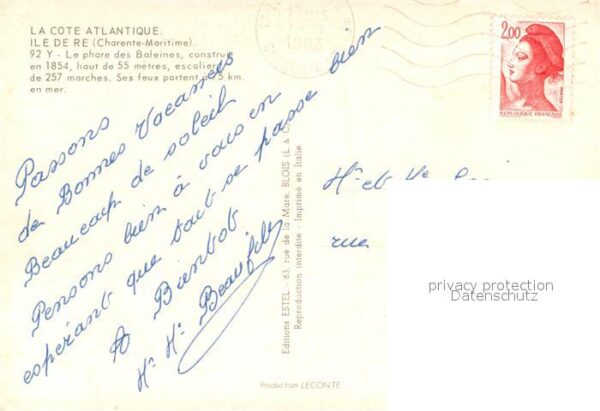 LA COTE ATLANTIQUE.
ILE DE RE (Charente-Maritime).
92 Y - Le phare des Baleines, construit
en 1854, haut de 55 mètres, escalier
de 257 marches. Ses feux portent à 5 km.
en mer.
1983
2,00
REPUBLIQUE FRANÇAISE
Passons
de Bonnes Vacances
Beaucoup de soleil
Pensons bien à vous en
espérant que tout se passe bien
A Bientot
Mr Me Beaufils
Editions ESTEL - 63, rue de la Mare, BLOIS (L. & C.)
Reproduction interdite - Imprimé en Italie.
Mr et Me
rue
privacy protection
Datenschutz
Production LECONTE